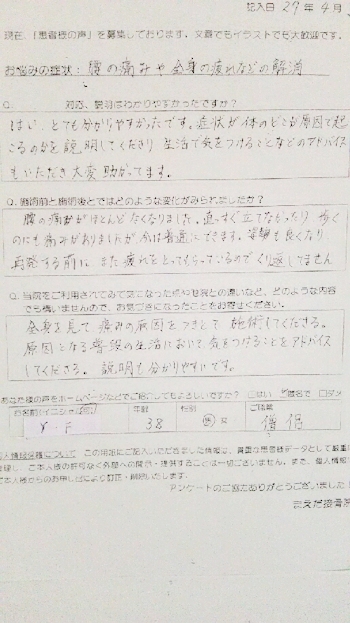 記入日 29年4月
現在、「患者様の声」を募集しております。文章でもイラストでも大歓迎です。
お悩みの症状：腰の痛みや全身の疲れなどの解消
Q. 対応、説明はわかりやすかったですか？
はい、とても分かりやすかったです。症状が体のどこが原因で起
こるのかを説明してくださり 生活で気をつけることなどのアドバイス
もいただき大変助かってます。
Q. 施術前と施術後とではどのような変化がみられましたか？
腰の痛みがほとんどなくなりました。真っすぐ立てなかったり 歩く
のにも痛みがありましたが、今は普通にできます。姿勢も良くなり
再発する前に また疲れをとってもらっているので くり返してません
Q. 当院をご利用されてみて気になった点や他院との違いなど、どのような内容
でも構いませんので、お気づきになったことをお寄せください。
全身を見て 痛みの原因をつきとめて 施術してくださる。
原因となる普段の生活において 気をつけることをアドバイス
してくださる。説明も分かりやすいです。
あなた様の声をホームページなどでご紹介してもよろしいですか？ □はい □匿名で □ダメ
お名前(イニシャル可) 年齢 性別 ご職業
Y・F 38 男・女 僧侶
個人情報保護について この用紙にご記入いただきました情報は、貴重な患者様データとして厳重に
管理し、ご本人様の許可なく外部への開示・提供することは一切ございません。また、個人情報
ご本人様からのお申し出により訂正・削除いたします。
アンケートのご協力ありがとうございました！
まえだ接骨院